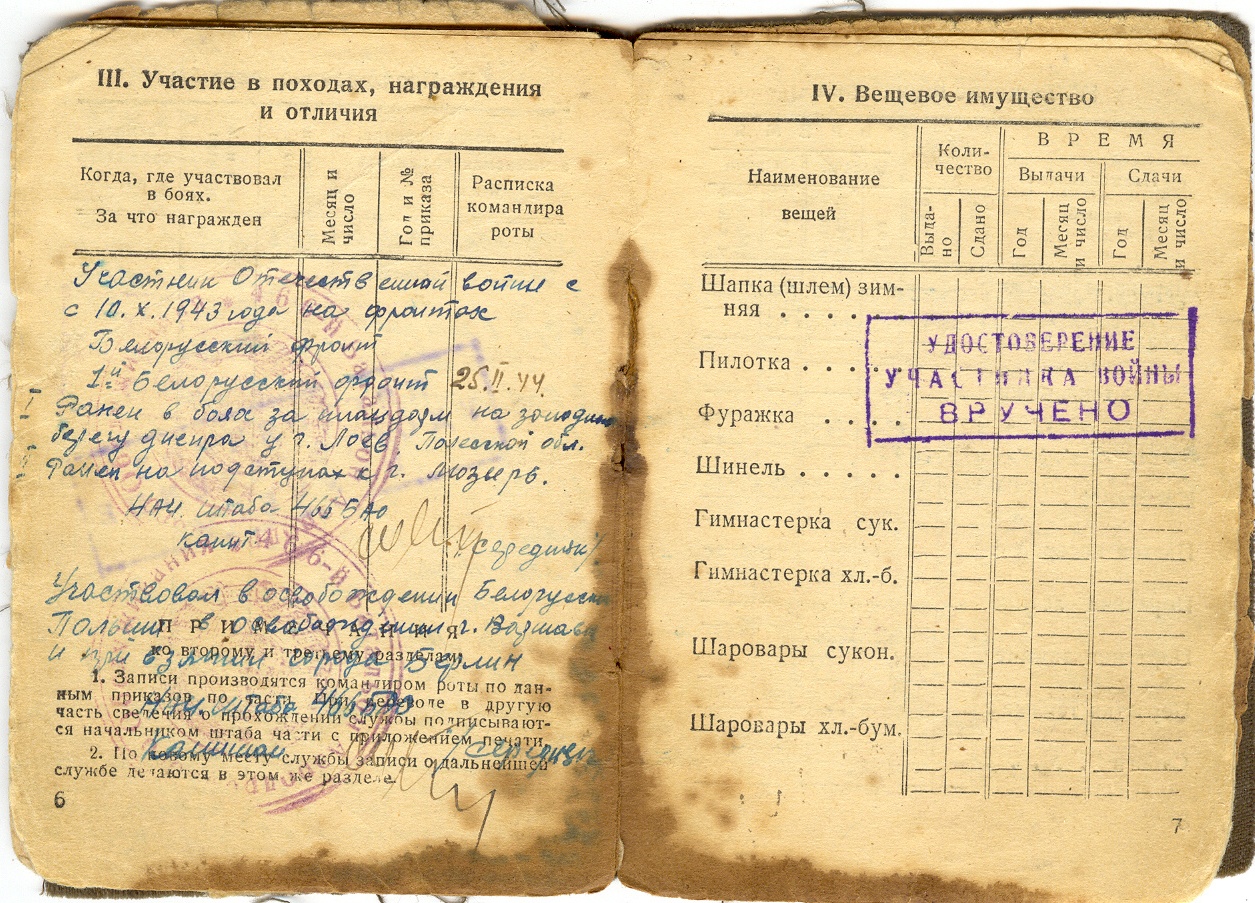 III. Участие в походах, награждения
и отличия
Когда, где участвовал
в боях.
За что награжден
Месяц и
число
Год и №
приказа
Расписка
командира
роты
Участник Отечественной войны с
с 10.X.1943 года на фронтах
Белорусский фронт
1й Белорусский фронт 25.II.44
I Ранен в боях за плацдарм на западном
берегу днепра у г. Лоев Полесской обл.
II Ранен на подступах к г. Мозырь.
Нач. штаба 466
капит
Участвовал в освобождении Белоруссии
Польши в освобождении г. Варшава
и при взятии города Берлин
Нач. штаба 466
Капитан
ПРИМЕЧАНИЯ
ко второму и третьему разделам.
1. Записи производятся командиром роты по дан-
ным приказов по части. При переводе в другую
часть сведения о прохождении службы подписывают-
ся начальником штаба части с приложением печати.
2. По новому месту службы записи о дальнейшей
службе делаются в этом же разделе.
6
IV. Вещевое имущество
Наименование
вещей
Коли-
чество
ВРЕМЯ
Выдачи
Сдачи
Выда-
но
Сдано
Год
Месяц
и число
Год
Месяц
и число
Шапка (шлем) зим-
няя . . . .
Пилотка . . . .
Фуражка . . . .
Шинель . . . . .
Гимнастерка сук.
Гимнастерка хл.-б.
Шаровары сукон.
Шаровары хл.-бум.
УДОСТОВЕРЕНИЕ
УЧАСТНИКА ВОЙНЫ
ВРУЧЕНО
7